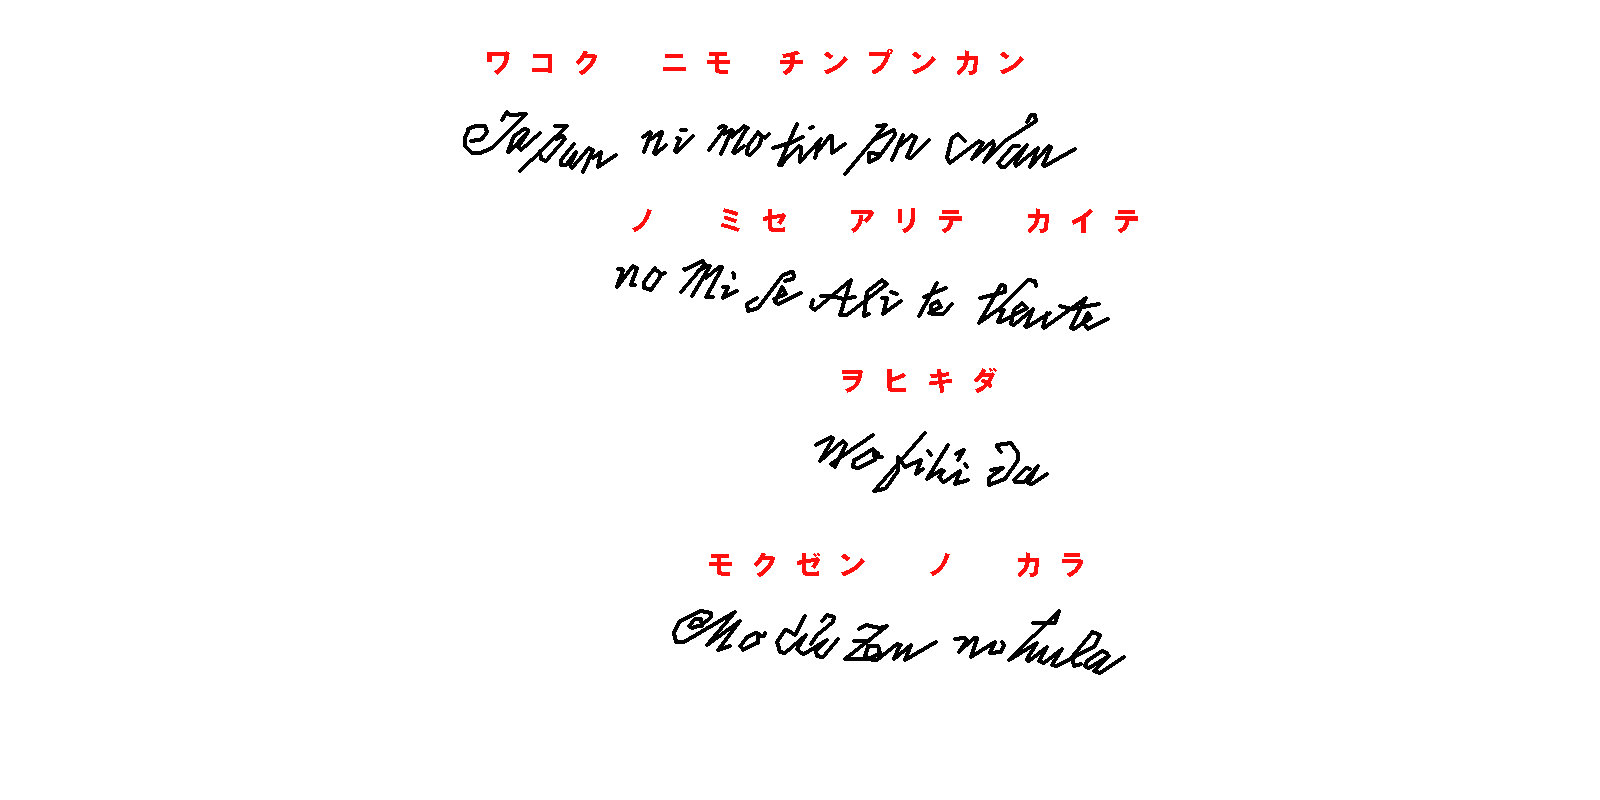 ワコク ニモ チンプンカン
Japan ni mo tin pn cwan
ノ ミセ アリテ カイテ
no Mi se Ali te
ヲヒキダ
wo fiki da
モクゼン ノ カラ
Mo zen no